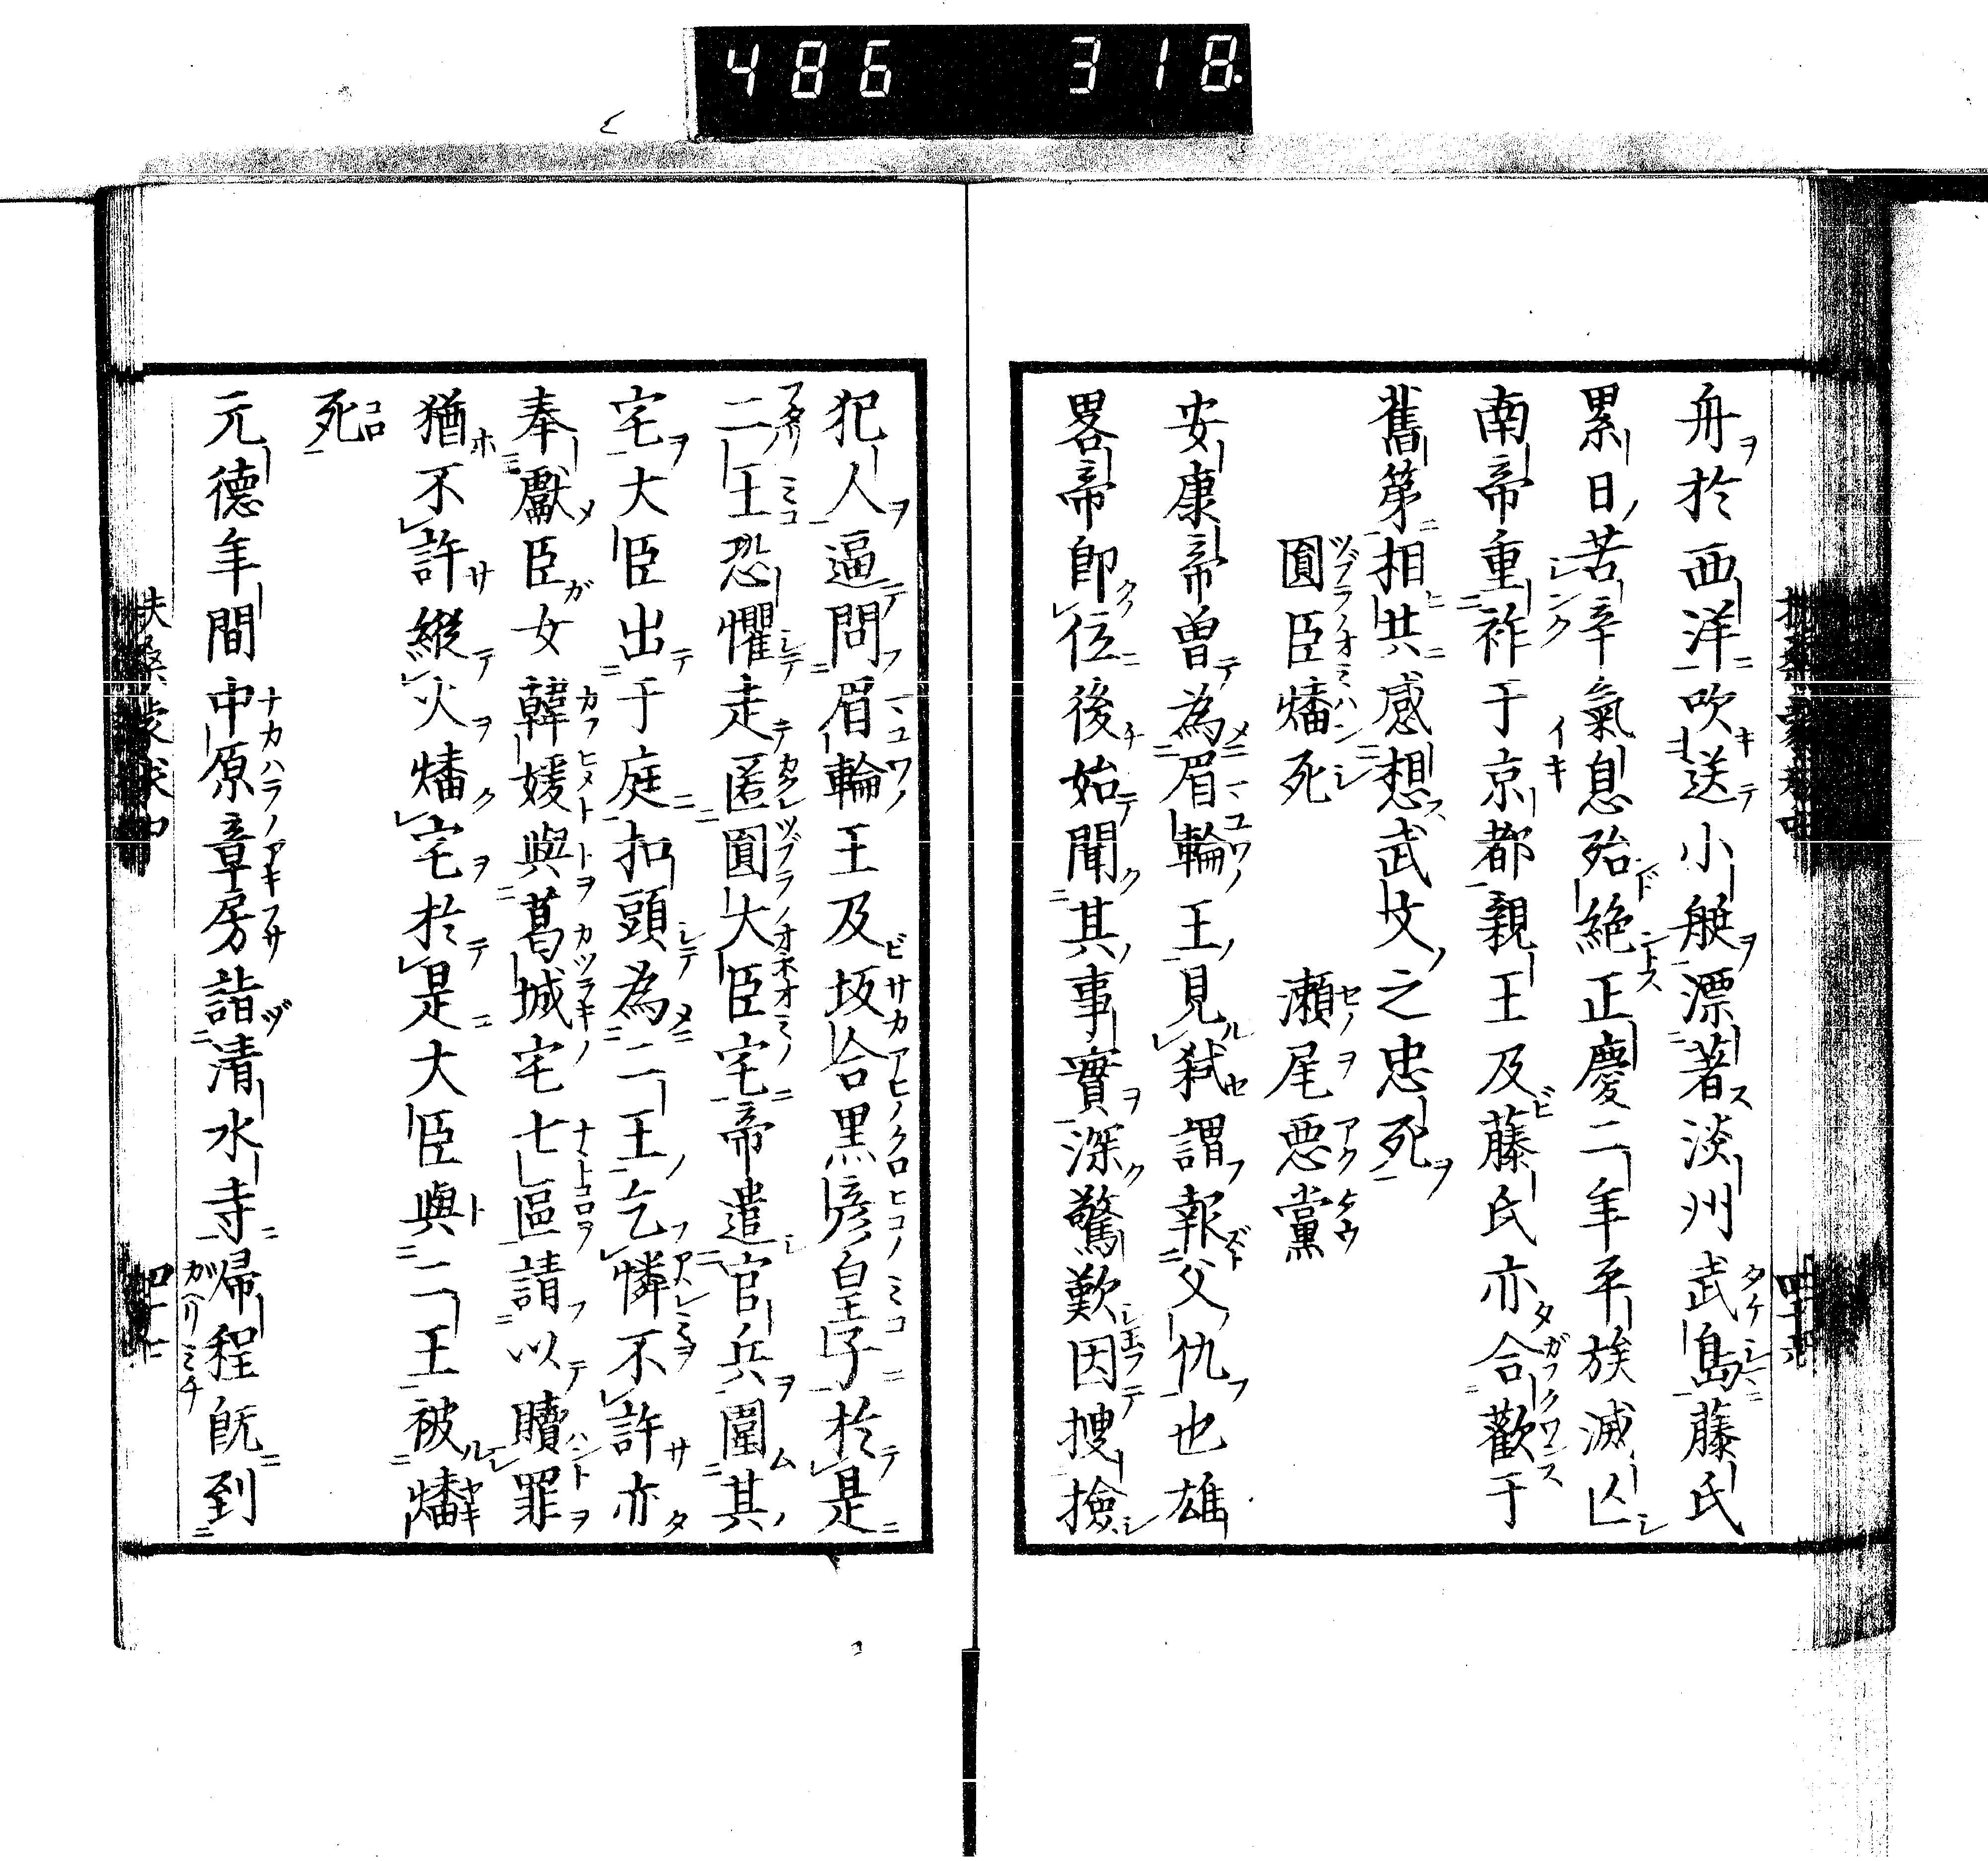 486 318
舟於西洋吹送小艇漂著淡州武島藤氏
累日苦辛氣息殆絶正慶二年平族滅亾
南帝重祚于京都親王及藤氏亦合歡于
舊第相共感想武文之忠死
圓臣燔死 瀬尾惡黨
安康帝曽為眉輪王見弑謂報父仇也雄
畧帝即位後始聞其事實深驚歎因搜撿
犯人逼問眉輪王及坂合黒彦皇子於是
二王恐懼走匿圓大臣宅帝遣官兵圍其
宅大臣出于庭扣頭為二王乞憐不許亦
奉獻臣女韓媛與葛城宅七區請以贖罪
猶不許縱火燔宅於是大臣與二王被燔
死
元德年間中原章房詣清水寺帰程既到